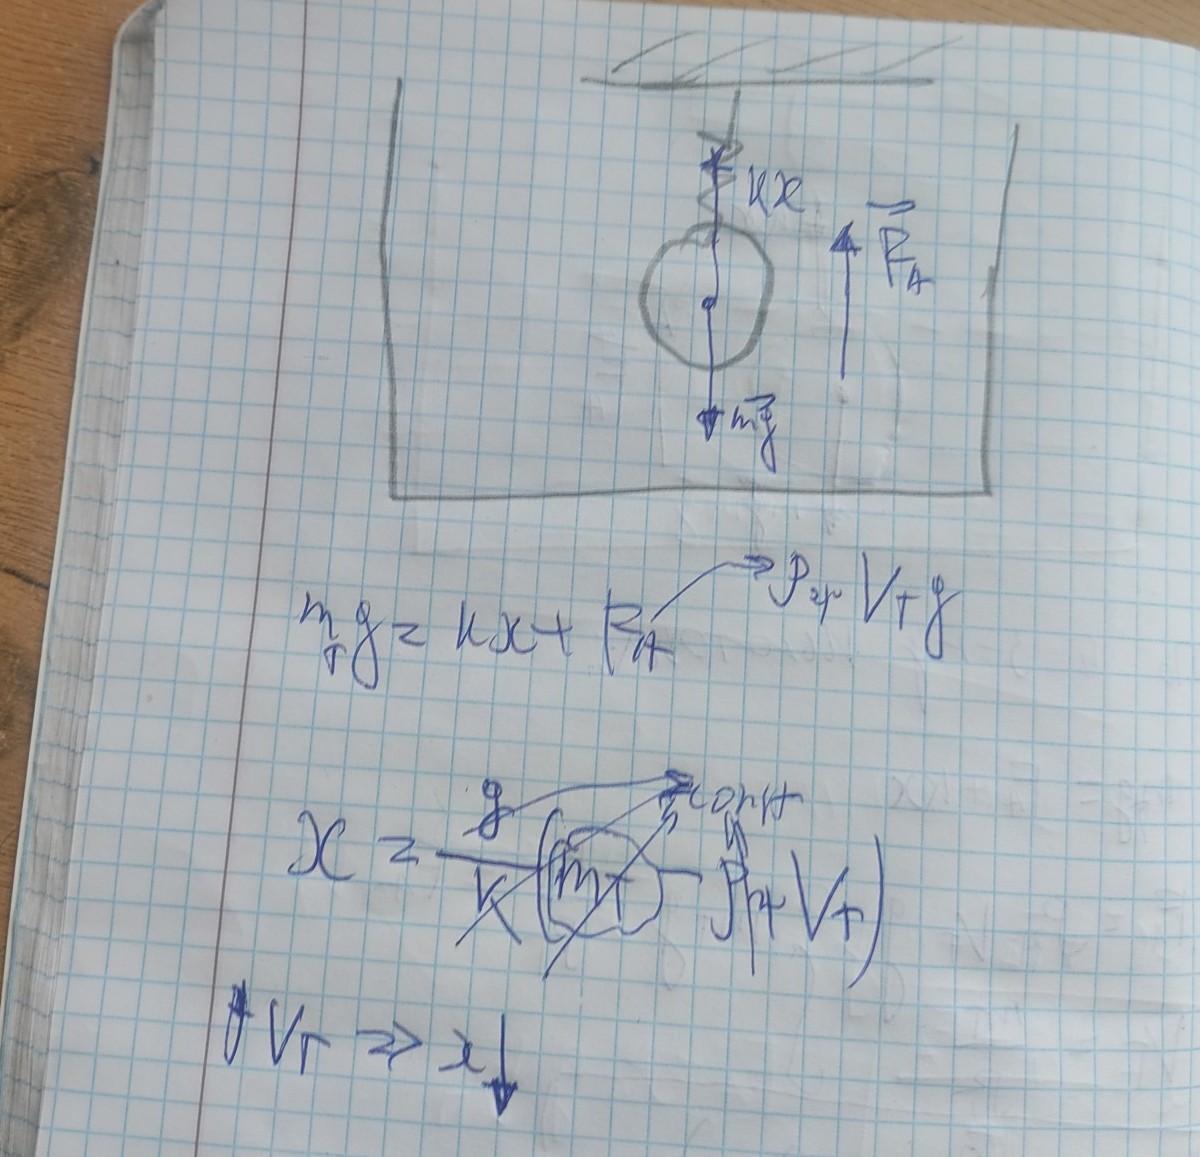 kx
F_A
mg
m_т g = kx + F_A → ρ_ж V_т g
x = g/k (m_т - ρ_ж V_т) const
↑ V_т ⇒ x ↓